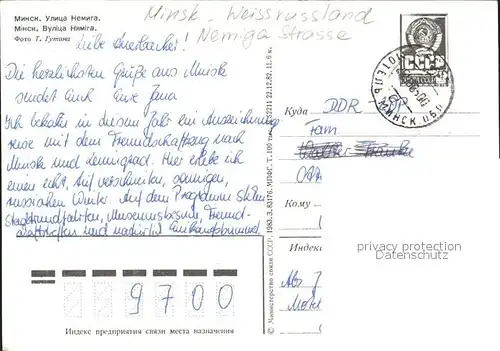 Минск. Улица Немига.
Мінск. Вуліца Няміга.
Фото Т. Гутина
Minsk - Weissrussland
Nemiga Strasse
Liebe Auerbacher!
Die herzlichsten Grüße aus Minsk
sendet Euch Eure Jana
Ich bekam in diesem Jahr ein Auszeichnungs
reise mit dem Freundschaftszug nach
Minsk und Leningrad. Hier erlebe ich
einen echt, tief verschneiten, sonnigen,
russischen Winter. Auf dem Programm stehen
Stadtrundfahrten, Museumsbesuche, Freund-
schaftstreffen und natürlich Einkaufsbummel
СССР
МИНСК
Куда DDR DDR
Fam.
Кому
Индекс
Abs
9700
Индекс предприятия связи места назначения
© Министерство связи СССР, 1983.
22.12.82.
privacy protection
Datenschutz